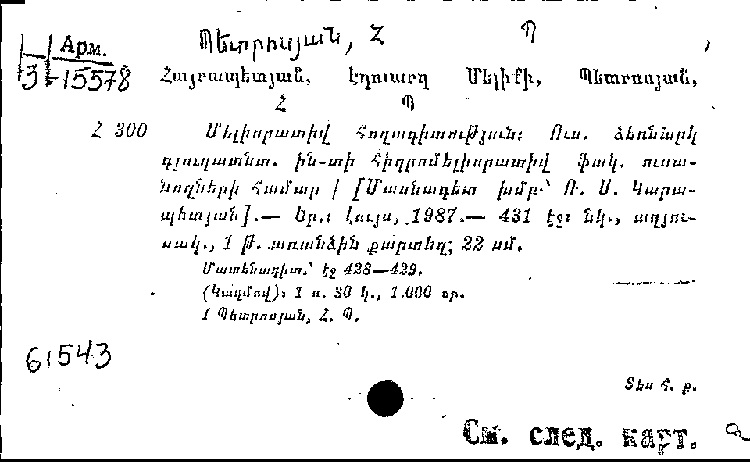 Պետրոսյան, Հ Պ
Арм.
3-15578
Հայրապետյան, Էդուարդ Մելիքի, Պետրոսյան,
Հ Պ
Հ 300 Մելիորատիվ հողագիտություն: Ուս. ձեռնարկ
գյուղատնտ. ին-տի հիդրոմելիորատիվ ֆակ. ուսա-
նողների համար / [Մասնագետ խմբ՝ Ռ. Ս. Կարա-
պետյան].— Եր.: Լույս, 1987.— 431 էջ: նկ., աղյու-
սակ., 1 թ. առանձին քարտեզ; 22 սմ.
Մատենագիտ.՝ էջ 428—429.
(Կազմով): 1 ռ. 30 կ., 1.000 օր.
1 Պետրոսյան, Հ. Պ.
61543
Տես հ. ք.
См. след. карт.